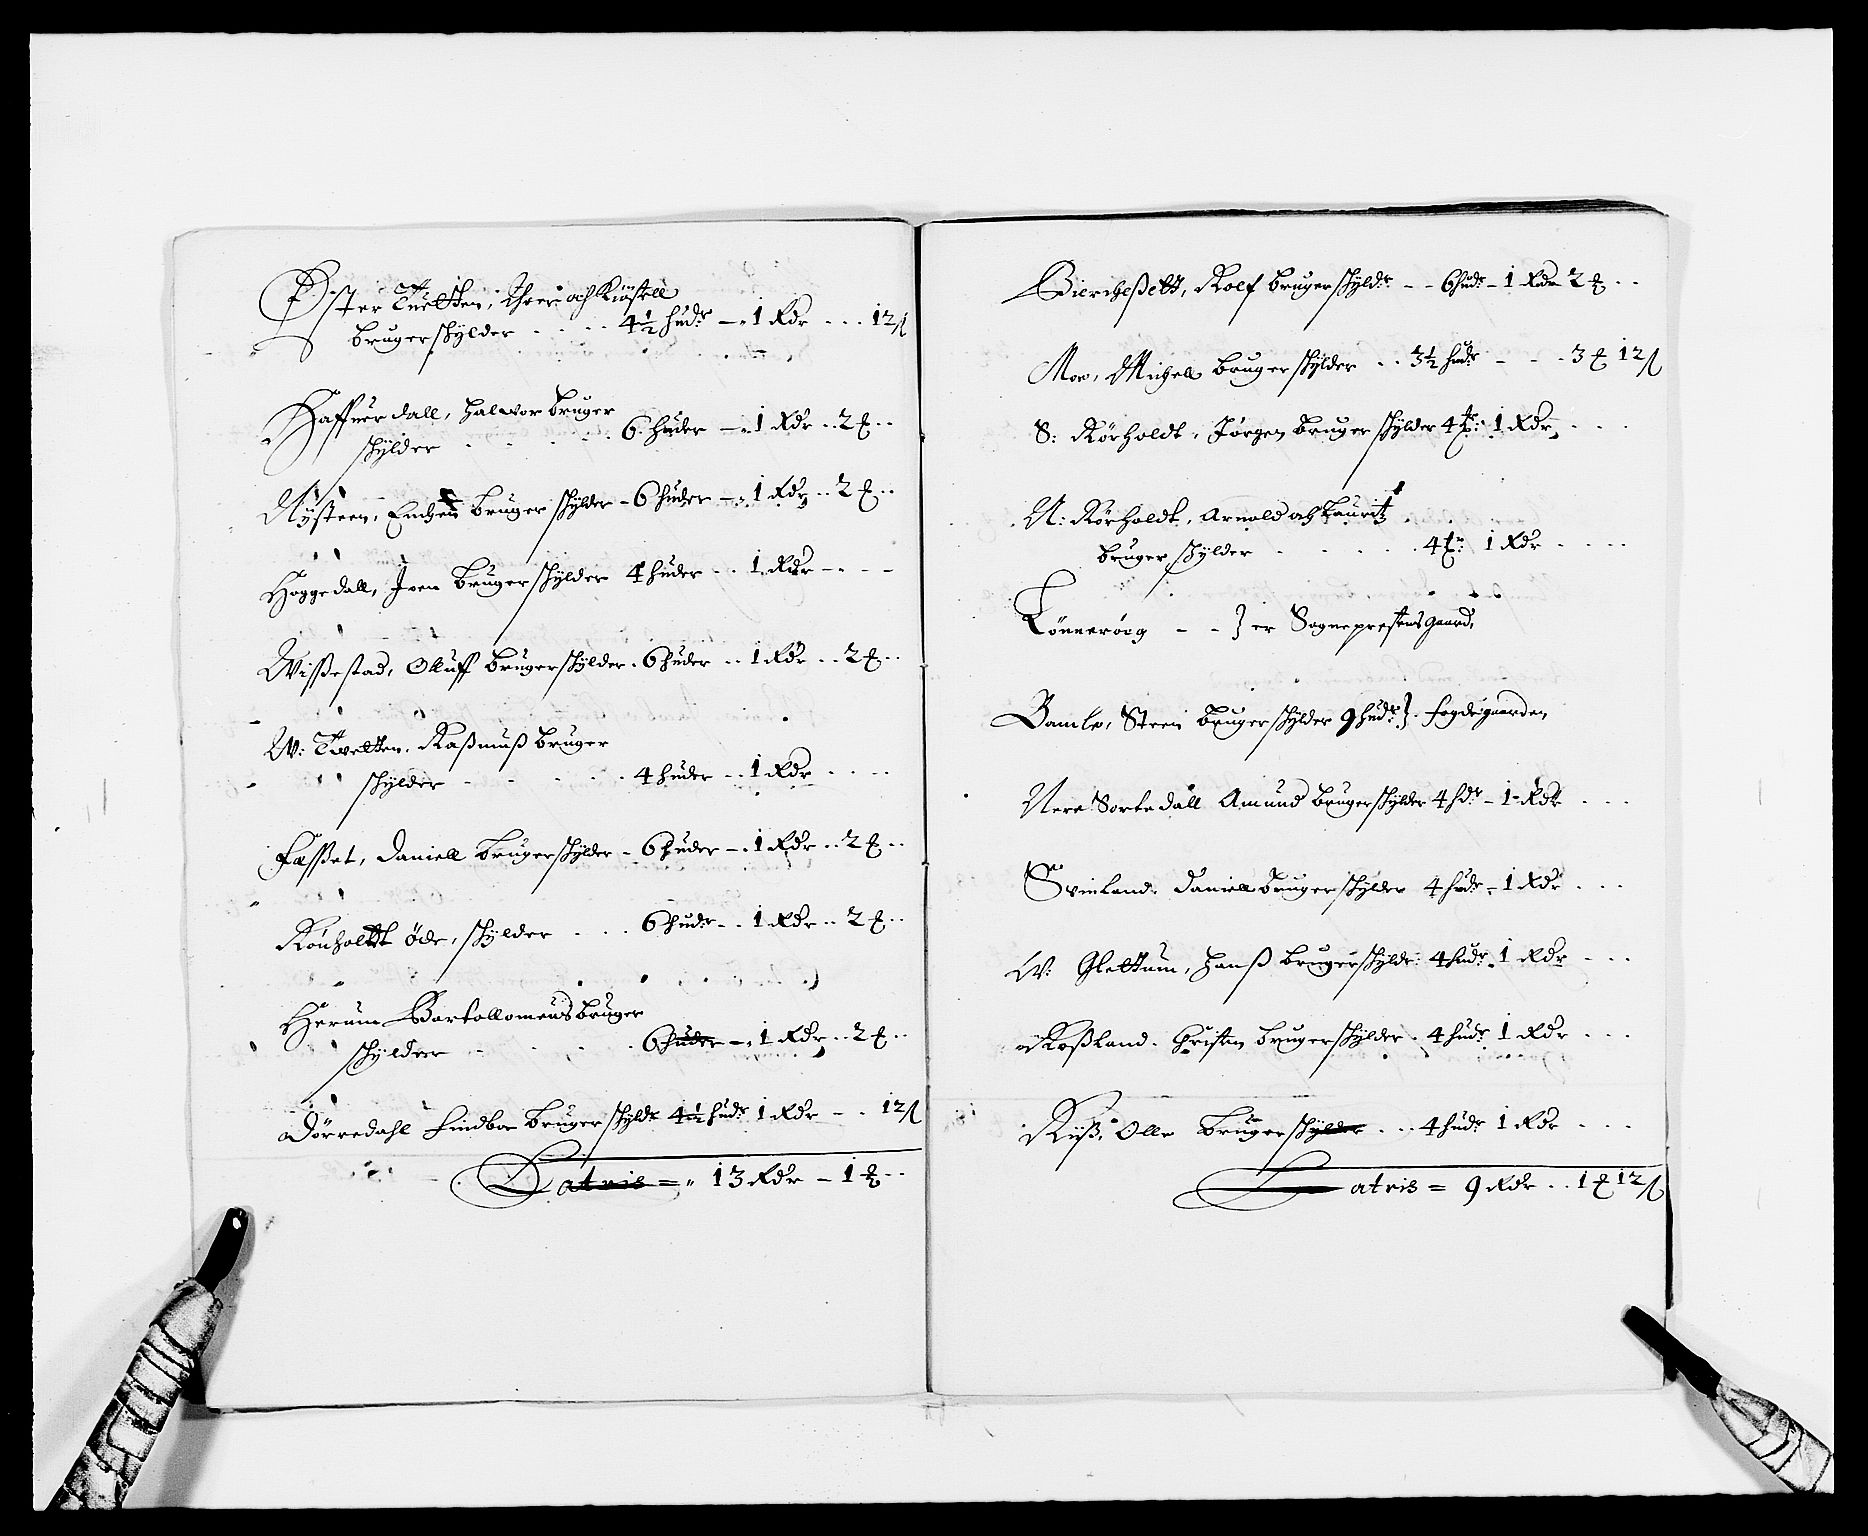 Øster Tuetten, Iver och Kiøstell
brugerschylder - - - 4½ hudr - 1 Rdr - - - 12 ß
Haffuerdall, Halvor bruger
schylder - - - 6 huder - 1 Rdr - - 2 ℔ - -
Nysteen, bruger schylder - 6 huder - 1 Rdr - - 2 ℔ - -
Hoggedall, Iven bruger schylder 4 huder - - 1 Rdr - - -
Wissestad, Olluff bruger schylder - 6 huder - - 1 Rdr - - 2 ℔ - -
W: Tvetten, Rassmuss bruger
schylder - - - 4 huder - - 1 Rdr - - -
Fosset, Daniell bruger schylder - 6 huder - 1 Rdr - - 2 ℔ - -
Rönholtt øde, schylder - - - 6 hudr - - 1 Rdr - - 2 ℔ - -
Herum Bartollomeus bruger
schylder - - - 6 huder - 1 Rdr - - 2 ℔ - -
Dørredahl Findbor bruger schyldr 4½ hudr 1 Rdr - - 12 ß
Latris = 13 Rdr - 1 ℔ - -
Bierchessett, Rolf bruger schyldr - - 6 hudr - 1 Rdr 2 ℔ - -
Moe, Michell bruger schylder - - 3½ hudr - - - 3 ℔ 12 ß
S: Rörholdt, Jørgen bruger schylder 4 tr: 1 Rdr - - -
N: Rörholdt, Arnold och Lauritz
bruger schylder - - - 4 tr: 1 Rdr - - -
Tönnerög - - } er Sogneprestens gaard,
Bamle, Steen bruger schylder 9 hudr } fogdegaarden,
Nere Sortedall Amund bruger schylder 4 hdr - 1 Rdr - - -
Svinland, Daniell bruger schylder 4 hudr - 1 Rdr - - -
W: Glettum, Hanss bruger schyldr: 4 hudr - 1 Rdr - - -
Rossland, Christen bruger schylder - 4 hudr 1 Rdr - - -
Riss, Olle bruger schylder - - - 4 hudr 1 Rdr - - -
Latris = 9 Rdr - - 1 ℔ 12 ß